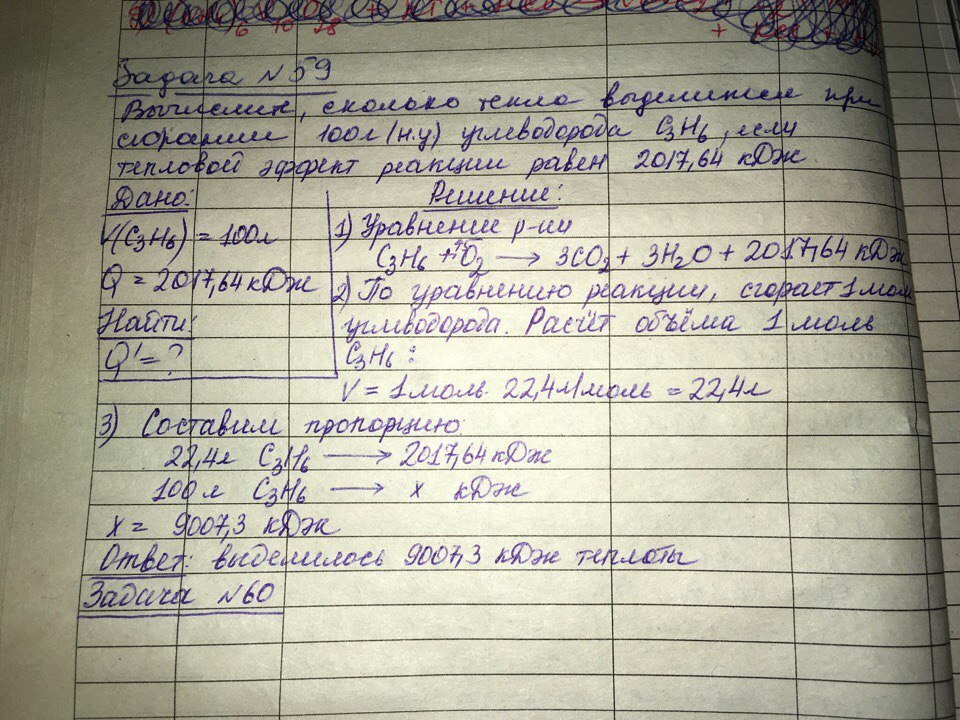 Задача №59
Вычислить, сколько тепла выделится при
сгорании 100л (н.у) углеводорода C₃H₆, если
тепловой эффект реакции равен 2017,64 кДж.
Дано:
V(C₃H₆) = 100л
Q = 2017,64 кДж
Найти:
Q' = ?
Решение:
1) Уравнение р-ии
C₃H₆ + O₂ → 3CO₂ + 3H₂O + 2017,64 кДж
2) По уравнению реакции, сгорает 1 моль
углеводорода. Расчёт объёма 1 моль
C₃H₆:
V = 1 моль · 22,4л/моль = 22,4л
3) Составим пропорцию
22,4л C₃H₆ → 2017,64 кДж
100 л C₃H₆ → x кДж
x = 9007,3 кДж
Ответ: выделилось 9007,3 кДж теплоты
Задача №60